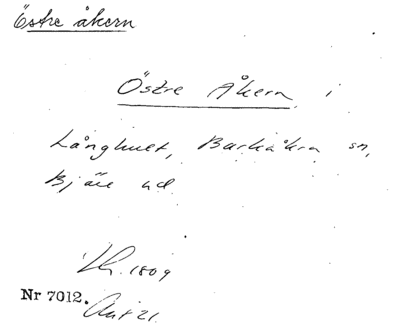 Östre åkern
Östre Åkern i
Långhult, Barkåkra sn,
Bjäre hd
Lh. 1809
Nr 7012.
Akt 21